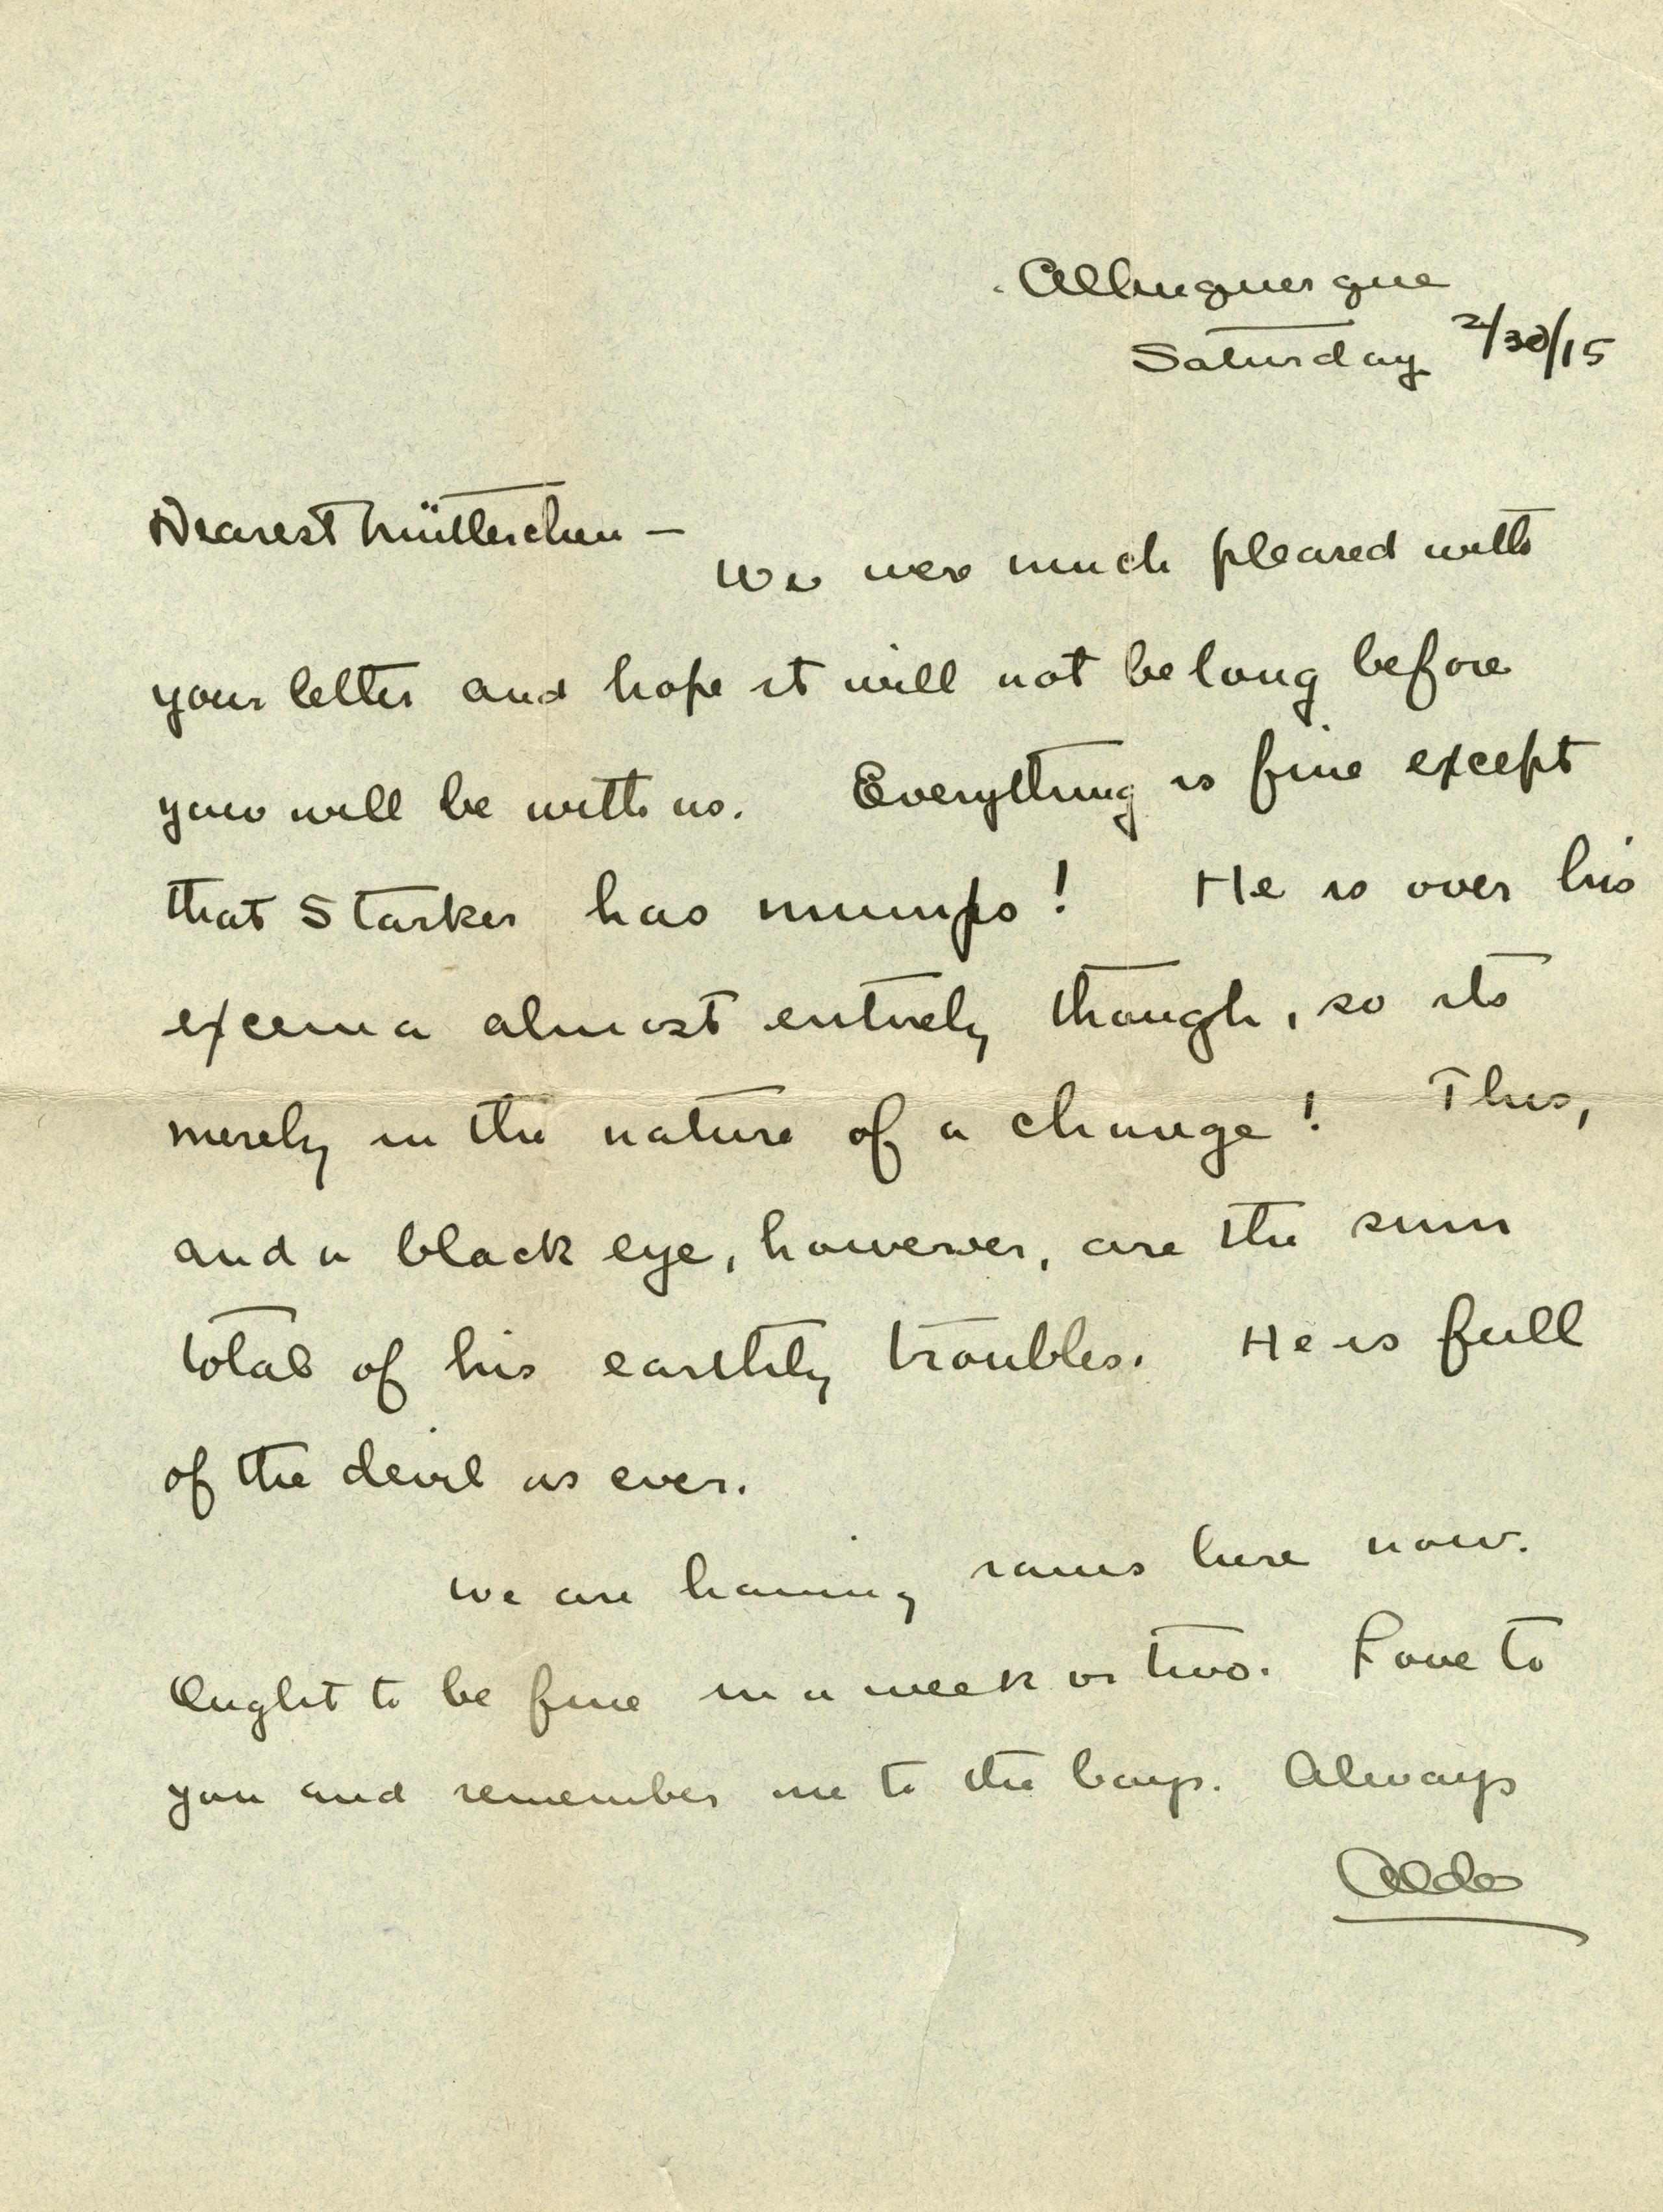 Albuquerque
Saturday 2/30/15
Dearest Mütterchen —
We were much pleased with
your letter and hope it will not be long before
you will be with us. Everything is fine except
that Starker has mumps! He is over his
excema almost entirely though, so its
merely in the nature of a change! This,
and a black eye, however, are the sum
total of his earthly troubles. He is full
of the devil as ever.
We are having rains here now.
Ought to be fine in a week or two. Love to
you and remember me to the boys. Always
Aldo